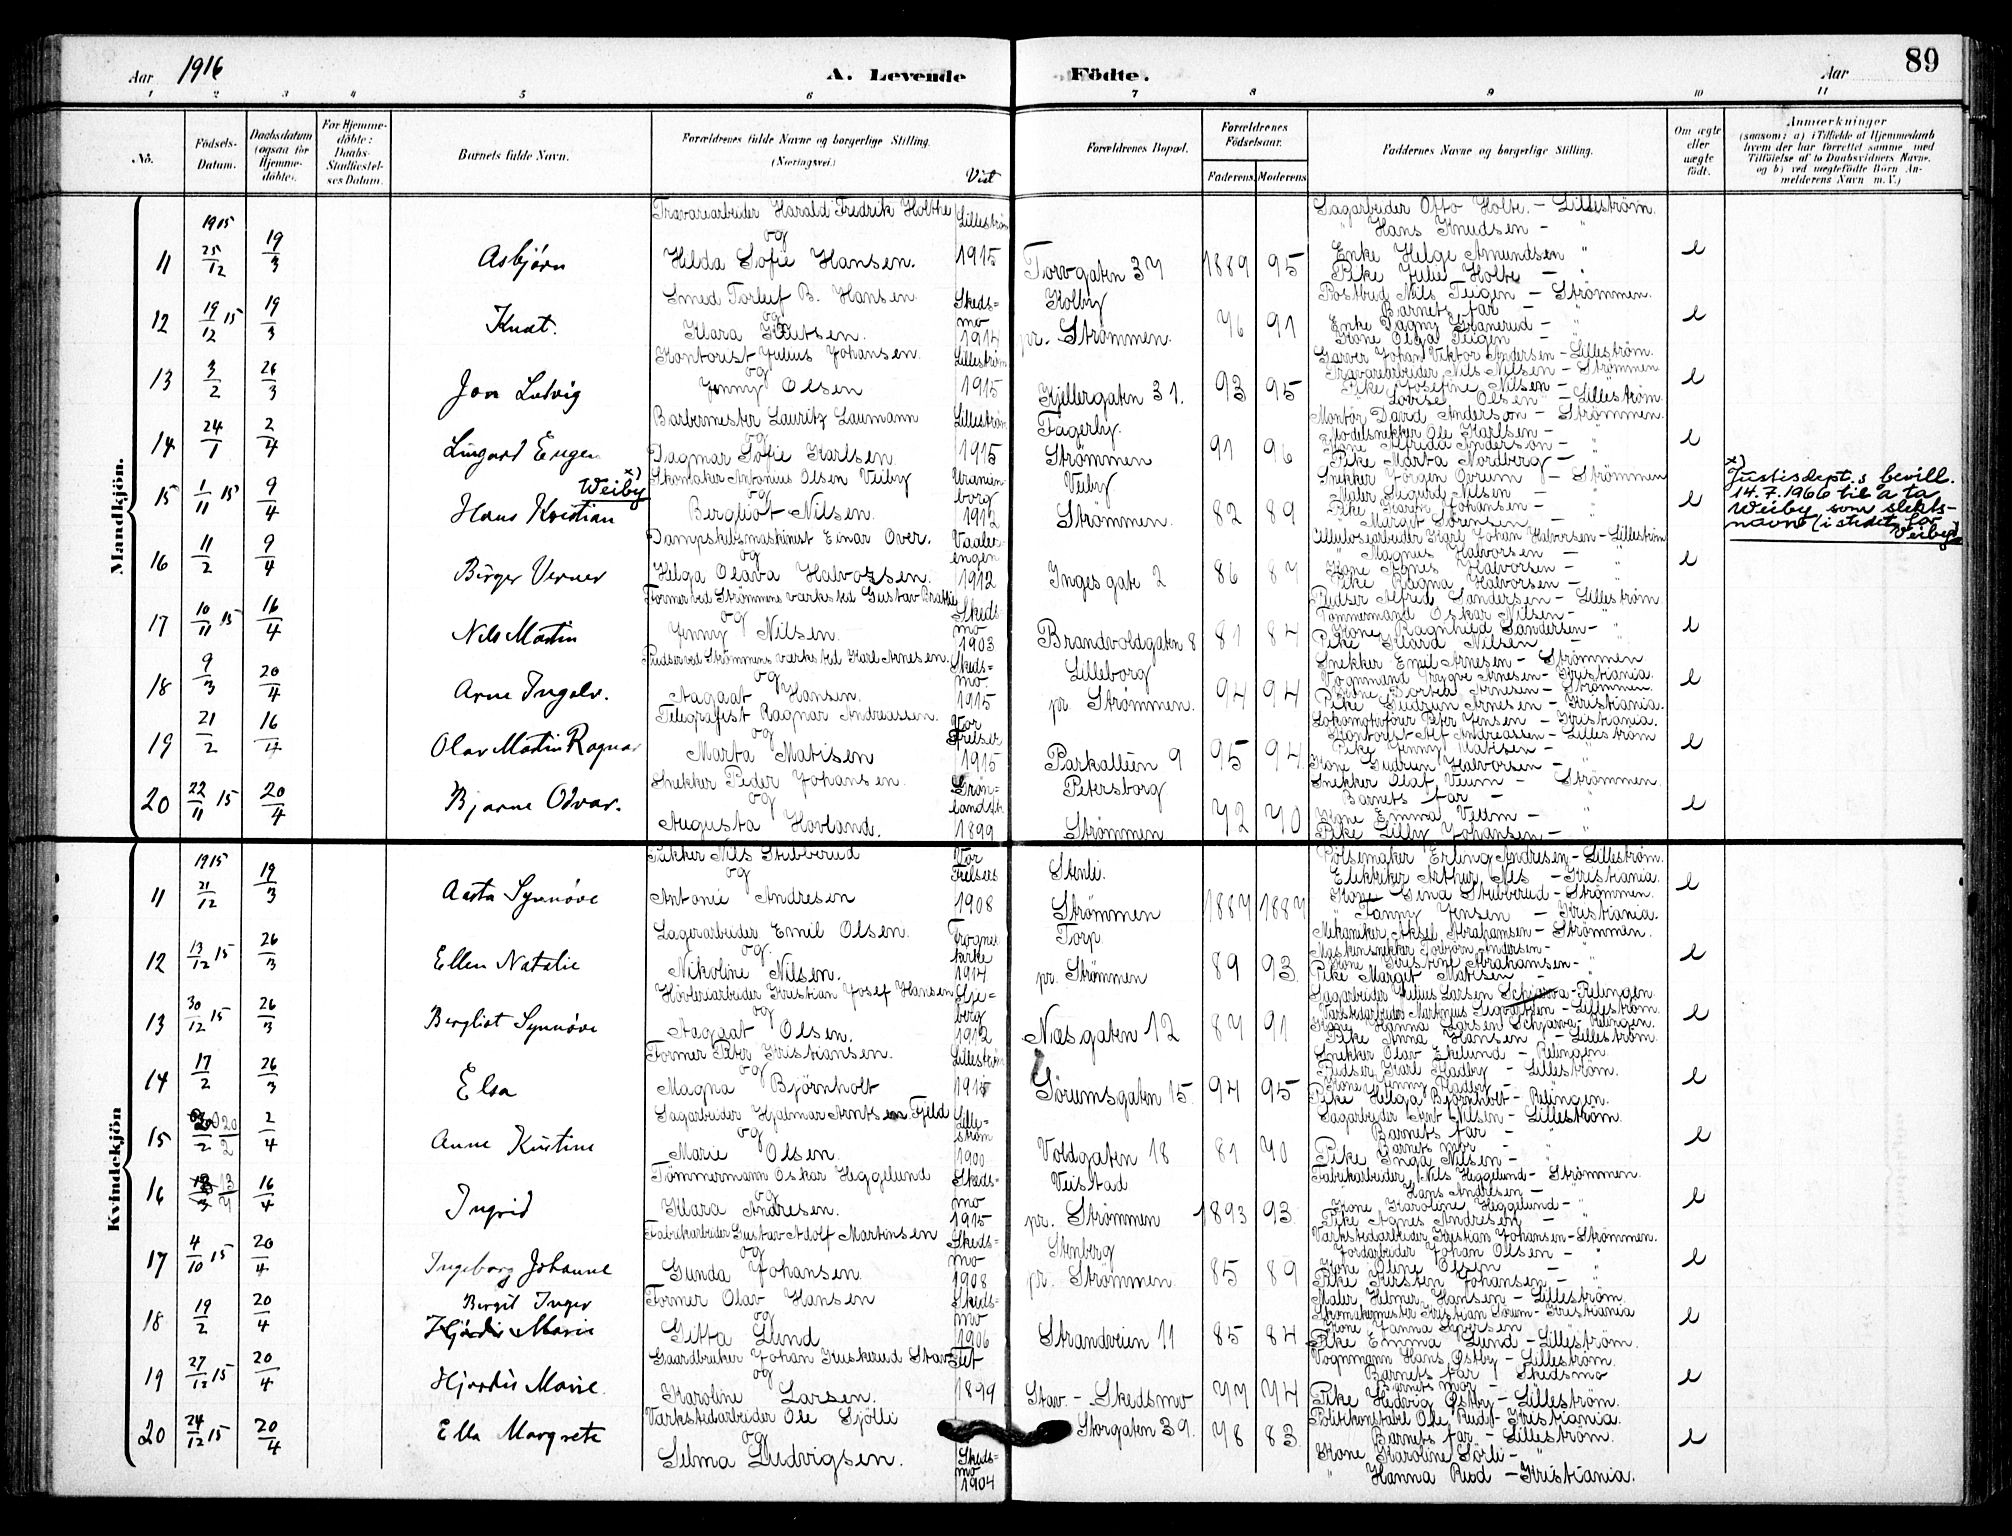 89
Aar 1916
A. Levende Födte.
Aar
1 2 3 4 5 6 7 8 9 10 11
No.
Födsels-Datum.
Daabsdatum (ogsaa for Hjemme-döbte).
For Hjemme-döbte: Daabs-Stadfæstel-ses Datum.
Barnets fulde Navn.
Forældrenes fulde Navne og borgerlige Stilling. (Næringsvei.)
Viet
Forældrenes Bopæl.
Forældrenes Födselsaar.
Faderens. Moderens.
Faddernes Navne og borgerlige Stilling.
Om ægte eller uægte født.
Anmærkninger
(saasom: a) i Tilfælde af Hjemmedaab hvem der har forrettet samme med Tilföielse af to Daabsvidners Navne, og b) ved uægtefødte Börn An-melderens Navn m. V.)
Mandkjön.
11 1915 25/12 19/3 Asbjörn
Travarearbeider Harald Fredrik Holtke og Hilda Sofie Hansen.
Lilleström 1915
Torvgaten 37 1889 95
Sagarbeider Otto Holte. - Lilleström.
" Hans Knudsen - "
Enke Helge Amundsen "
Pike Julie Holte - "
e
12 19/12 15 19/3 Knut.
Smed Torleif B. Hansen og Klara Knutsen.
Skeds-mo 1914
Kolby pr. Strømmen. 76 91
Postbud Nils Teigen - Strömmen.
Barnets far - "
Enke Dagny Granerud - "
Kone Olga Teigen - "
e
13 3/2 26/3 Jon Ludvig
Kontorist Julius Johansen. og Jenny Olsen
Lilleström 1915
Kjellergaten 31. 93 95
Garver Johan Viktor Andersen - Lilleström.
Travarearbeider Nils Nilsen - Strömmen
Pike Josefine Nilsen - "
" Lovise Olsen - Lilleström.
e
14 24/1 2/4 Lingard Eugen
Barbermester Lauritz Laumann og Dagmar Sofie Karlsen
Lilleström 1915
Fagerby. Strömmen 91 96
Montör David Anderson - Strömmen.
Modelsnekker Ole Karlsen - "
Kone Alfrida Anderson - "
Pike Marta Nordberg - "
e
15 1/11 15 9/4 Hans Kristian Weiby x)
Skomaker Antonius Olsen Veiby og Bergliot Nilsen.
Uranien borg 1912
Veiby Strömmen. 82 89
Snekker Jörgen Overum - Strömmen
Maler Sigurd Nilsen - "
Pike Karen Johansen - "
" Margit Sörensen - "
e
x) Justisdept.s bevill. 14.7.1966 til å ta Weiby som slekts-navn (i stedet for Veiby)
16 11/2 9/4 Birger Verner
Dampskibsmaskinist Einar Over. og Helga Olava Halvorsen.
Vaaler-engen 1912
Inges gate 2 86 87
Cellulosearbeider Karl Johan Halvorsen - Lilleström
" Magnus Halvorsen - "
Kone Agnes Halvorsen - "
Pike Ragna Halvorsen - "
e
17 10/11 15 16/4 Nils Martin
Former ved Strömmens værksted Gustav Brattli og Jenny Nilsen.
Skeds mo 1903
Brandvoldgaten 8 81 84
Pudser Alfred Sandersen - Lilleström.
Tömmermand Oskar Nilsen - "
Kone Ragnhild Sandersen - "
Pike Klara Nilsen - "
e
18 9/3 20/4 Arne Ingolv.
Pudser ved Strömmens værksted Karl Arnesen. og Aagaat Hansen.
Skeds-mo. 1915
Lilleborg pr Strömmen. 94 94
Snekker Emil Arnesen - Strömmen
Vognmand Trygve Arnesen - Kristiania.
Kone Borba Arnesen - Strömmen.
Pike Gudrun Arnesen - Kristiania.
e
19 21/2 16/4 Olav Martin Ragnar
Telegrafist Ragnar Andreassen. og Marta Matisen
Vor Frelser 1915
Parkalleen 9 95 94
Lokomotivförer Peter Jensen - Kristiania.
Kontorist Alf Andreassen - Lilleström
Pike Jenny Matisen - "
Kone Gudrun Halvorsen - "
e
20 22/11 15 20/4 Bjarne Odvar.
Snekker Peder Johansen. og Augusta Hovland.
Grön-landsk. 1899
Petersborg Strömmen 72 70
Snekker Olaf Veum - Strömmen.
Barnets far - "
Kone Emma Veum - "
Pike Lilly Johansen - "
e
Kvindekjön
11 1915 21/12 19/3 Aasta Synnöve
Snekker Nils Stubberud og Antonie Andresen
Vor Frelses 1908
Stenli. Strömmen 1887 1887
Pölsemaker Erling Andresen - Lilleström.
Elektriker Arthur Nes - Kristiania.
Kone Gina Stubberud - Strömmen.
" Fanny Jensen - Kristiania.
e
12 13/12 15 26/3 Ellen Natalie
Lagerarbeider Emil Olsen. og Nikoline Nilsen.
Frogner kirke 1914
Torp pr. Strömmen 89 93
Mekaniker Aksel Abrahamsen - Strömmen.
Maskinsnekker Torbjörn Andersen - "
Kone Kristine Abrahamsen - "
Pike Margit Matisen - "
e
13 30/12 15 26/3 Bergliot Synnöve
Hövleriarbeider Kristian Josef Hansen og Aagaat Olsen.
Gjer-berg 1912
Næsgaten 12 87 91
Sagarbeider Julius Larsen Schjærva - Rælingen
Værkstedarbeider Markinius Sigvartsen - Lilleström.
Kone Hanna Larsen Schjærva - Rælingen.
Pike Anna Hansen - Lilleström.
e
14 17/2 26/3 Elsa
Former Peter Kristiansen. og Magna Björnholt
Lilleström 1915
Sörumsgaten 15. 94 95
Snekker Olav Ekelund - Rælingen
Pudser Karl Hadby - Lilleström.
Kone Jenny Hadby - "
Pike Helga Björnholt - Rælingen.
e
15 20/2 2/4 Anne Kristine
Sagarbeider Hjalmar Arntsen Fjeld og Marie Olsen.
Lille-ström 1900
Voldgaten 18 81 70
Sagarbeider Arnt Nilsen - Lilleström.
Barnets far - "
Barnets mor - "
Pike Inga Nilsen - "
e
16 13/4 16/4 Ingrid
Tömmermann Oskar Heggelund og Klara Andresen.
Skeds-mo 1915
Veistad pr. Strömmen 1893 93
Fabrikarbeider Nils Heggelund - Strömmen.
" Hans Andresen - "
Kone Karoline Heggelund - "
Pike Agnes Andresen - "
e
17 4/10 15 20/4 Ingeborg Johanne
Fabrikarbeider Gustav Adolf Martinsen og Gunda Johansen.
Skeds-mo 1908
Stenberg pr. Strömmen. 85 89
Værkstedarbeider Kristian Johansen - Strömmen.
Jordarbeider Johan Olsen - "
Kone Oline Olsen - "
Pike Kirsten Johansen - "
e
18 19/2 20/4 Birgit Inger
Hjördis Marie
Former Olav Hansen og Gitta Lund
Skeds-mo 1906
Strandveien 11 85 84
Maler Helmer Hansen - Lilleström.
Skomakermester Kristian Sörum - Kristiania
Kone Hanna Iversen "
Pike Emma Lund - Lilleström.
e
19 27/12 15 20/4 Hjördis Marie.
Gaardbruker Johan Kuskerud Stav og Karoline Larsen.
Fet 1899
Stav. - Skedsmo 77 74
Vognmann Hans Østby - Lilleström.
Barnets far - Skedsmo
Barnets mor - "
Pike Hedvig Østby - Lilleström.
e
20 24/12 15 20/4 Ella Margrete
Værkstedarbeider Ole Sjölli og Selma Ludvigsen.
Skeds-mo 1904
Storgaten 39. 78 83
Politikonstabel Ole Ruud - Kristiania.
Barnets far - Lilleström.
Kone Karoline Sörli - "
" Hanna Ruud - Kristiania.
e